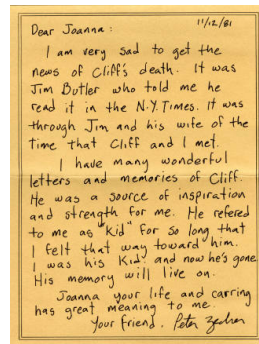 11/12/81
Dear Joanna:
I am very sad to get the
news of Cliff's death. It was
Jim Butler who told me he
read it in the N.Y. Times. It was
through Jim and his wife of the
time that Cliff and I met.
I have many wonderful
letters and memories of Cliff.
He was a source of inspiration
and strength for me. He refered
to me as "Kid" for so long that
I felt that way toward him.
I was his Kid. and now he's gone
His memory will live on.
Joanna your life and carring
has great meaning to me.
Your friend, Peter